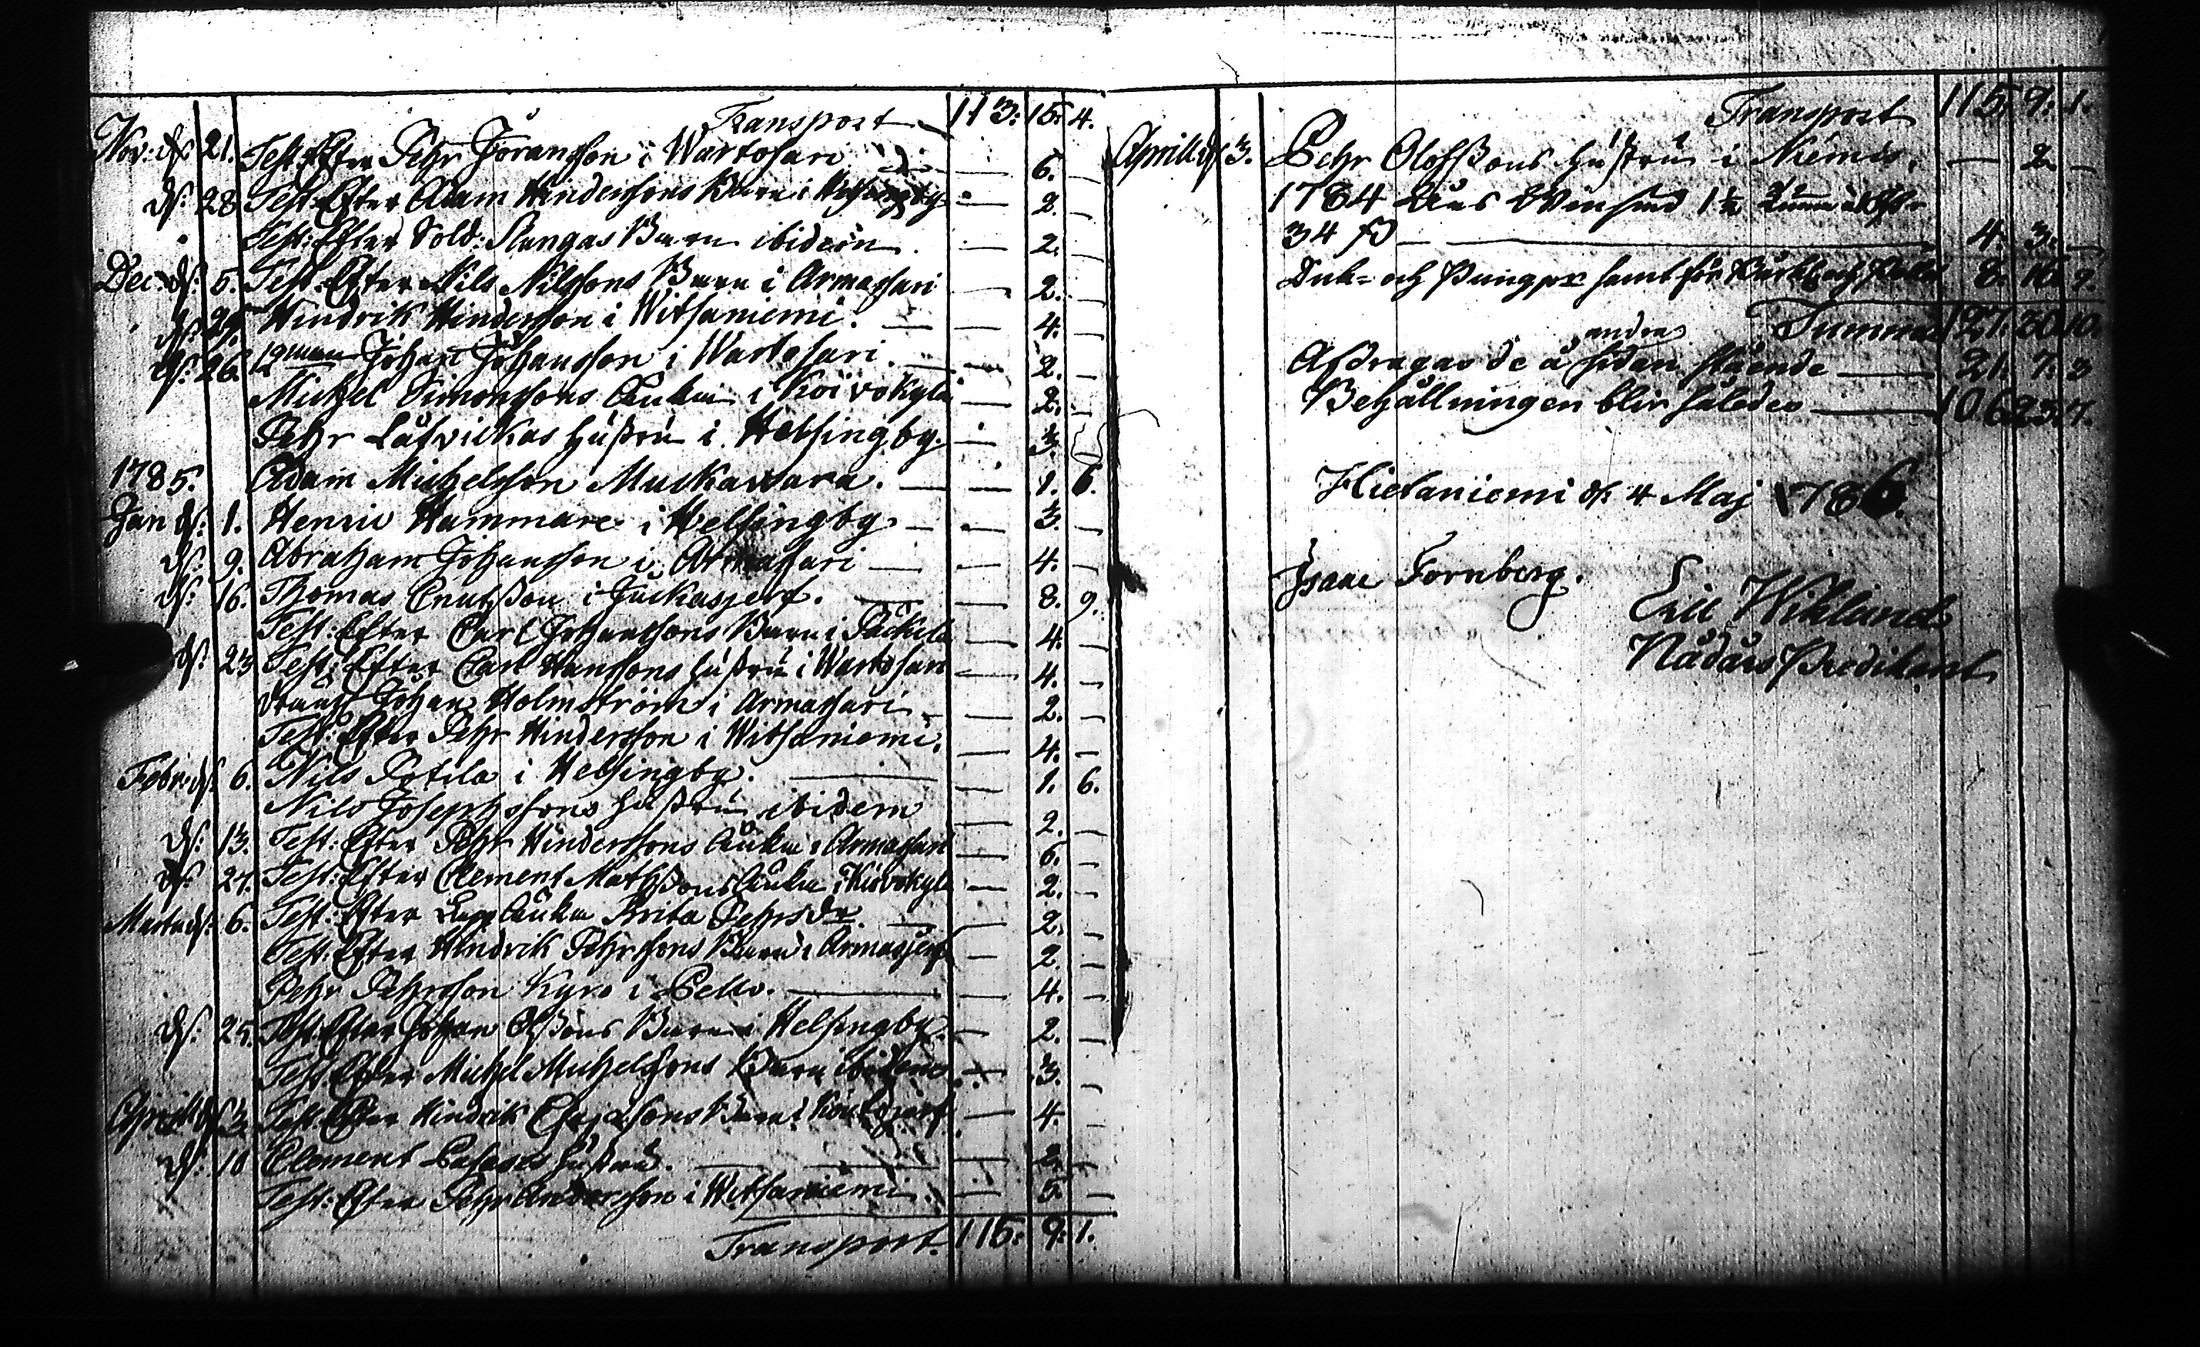 Transport 113: 15: 4.
Nov: d: 21. Test: Efter Pehr Joransson i Wartosari — 6. —
d: 28 Test: Efter Adam Hinderssons Barn i Helsingby — 2. —
Test: Efter Sold: Slangas Barn ibidem — 2. —
Dec: d: 5. Test: Efter Nils Nilssons Barn i Armassari — 2. —
Hindrik Hindersson i Witsaniemi. — 4. —
d: 26. Johan Johansson i Wartosari. — 2. —
Michel Simonssons Änka i Koivokylä — 2. —
Pehr hustru i Helsingby. — 3.
1785. Adam Michelsson Muckawara. — 1. 6.
Jan d: 1. Henric Hammare i Helsingby — 3. —
d: 9. Abraham Johansson i Armassari — 4. —
d: 16. Thomas Cnutsson i Juckasjerf. — 8. 9.
Test: Efter Carl Johanssons Barn i — 4. —
d: 23 Test: Efter Carl Hanssons hustru i Wartosari — 4. —
Johan Holmström i Armassari — 2. —
Test: Efter Pehr Hindersson i Witsaniemi. — 4. —
Febr: d: 6. Nils Potila i Helsingby. — 1. 6.
Nils Josephssons hustru ibidem — 2. —
d: 13. Test: Efter Pehr Hinderssons Änka i Armassari — 6. —
d: 27. Test: Efter Clement Mathssons Änka i Koivokylä — 2. —
Martii d: 6. Test: Efter Lapp Änka Brita Pehrsdr. — 2. —
Test: Efter Hindrik Pehrssons Barn i Armasjerf — 2. —
Pehr Pehrsson Kyro i Pello. — 4. —
d: 25. Test: Efter Johan Barn i Helsingby — 2. —
Test: Efter Michel Michelssons Barn ibidem — 3. —
Aprill d: 3. Test: Efter Hindrik Barn i — 4. —
d: 10 Clement hustru. — 2. —
Test: Efter Pehr Andersson i Witsaniemi. — 5. —
Transport. 115: 9: 1.
Transport 115: 9: 1.
Aprill d: 3. Pehr Olofssons hustru i Niemis. — 2 —
1784 1 1/2
34 — 4. 3. —
och samt för 8. 16. 9.
Summa 127: 30: 10.
andra
Afdragas de å sidan stående — 21: 7: 3
Behållningen blir således — 106: 23: 7.
Hietaniemi d: 4 Maj 1786.
Isaac Fornberg.
Eric Wiklund
Nådårs Predikant